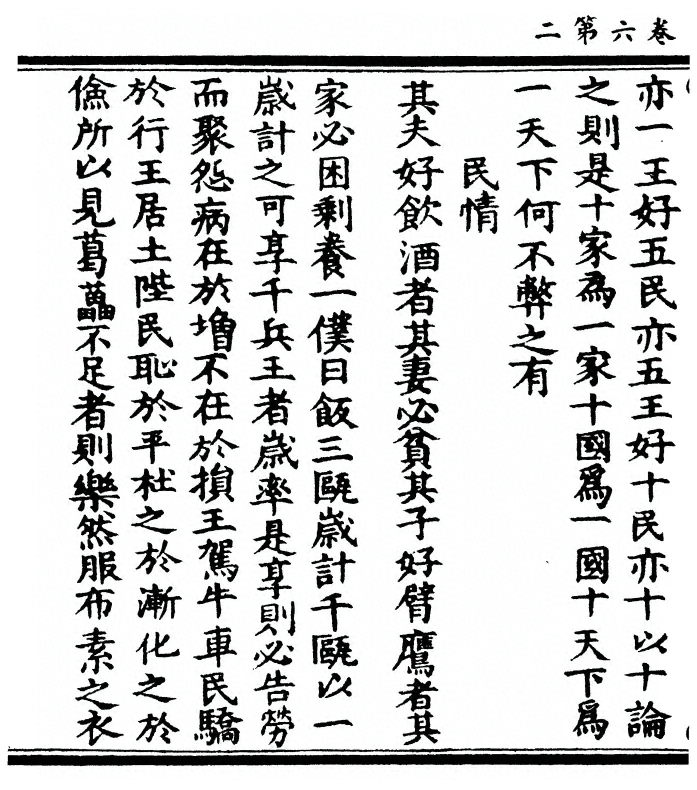 卷六第二
亦一王好五民亦五王好十民亦十以十論
之則是十家爲一家十國爲一國十天下爲
一天下何不弊之有
民情
其夫好飲酒者其妻必貧其子好臂鷹者其
家必困剩養一僕日飯三甌嵗計千甌以一
嵗計之可享千兵王者嵗率是享則必告勞
而聚怨病在於增不在於損王駕牛車民驕
於行王居土陛民恥於平杜之於漸化之於
儉所以見葛藟不足者則樂然服布素之衣